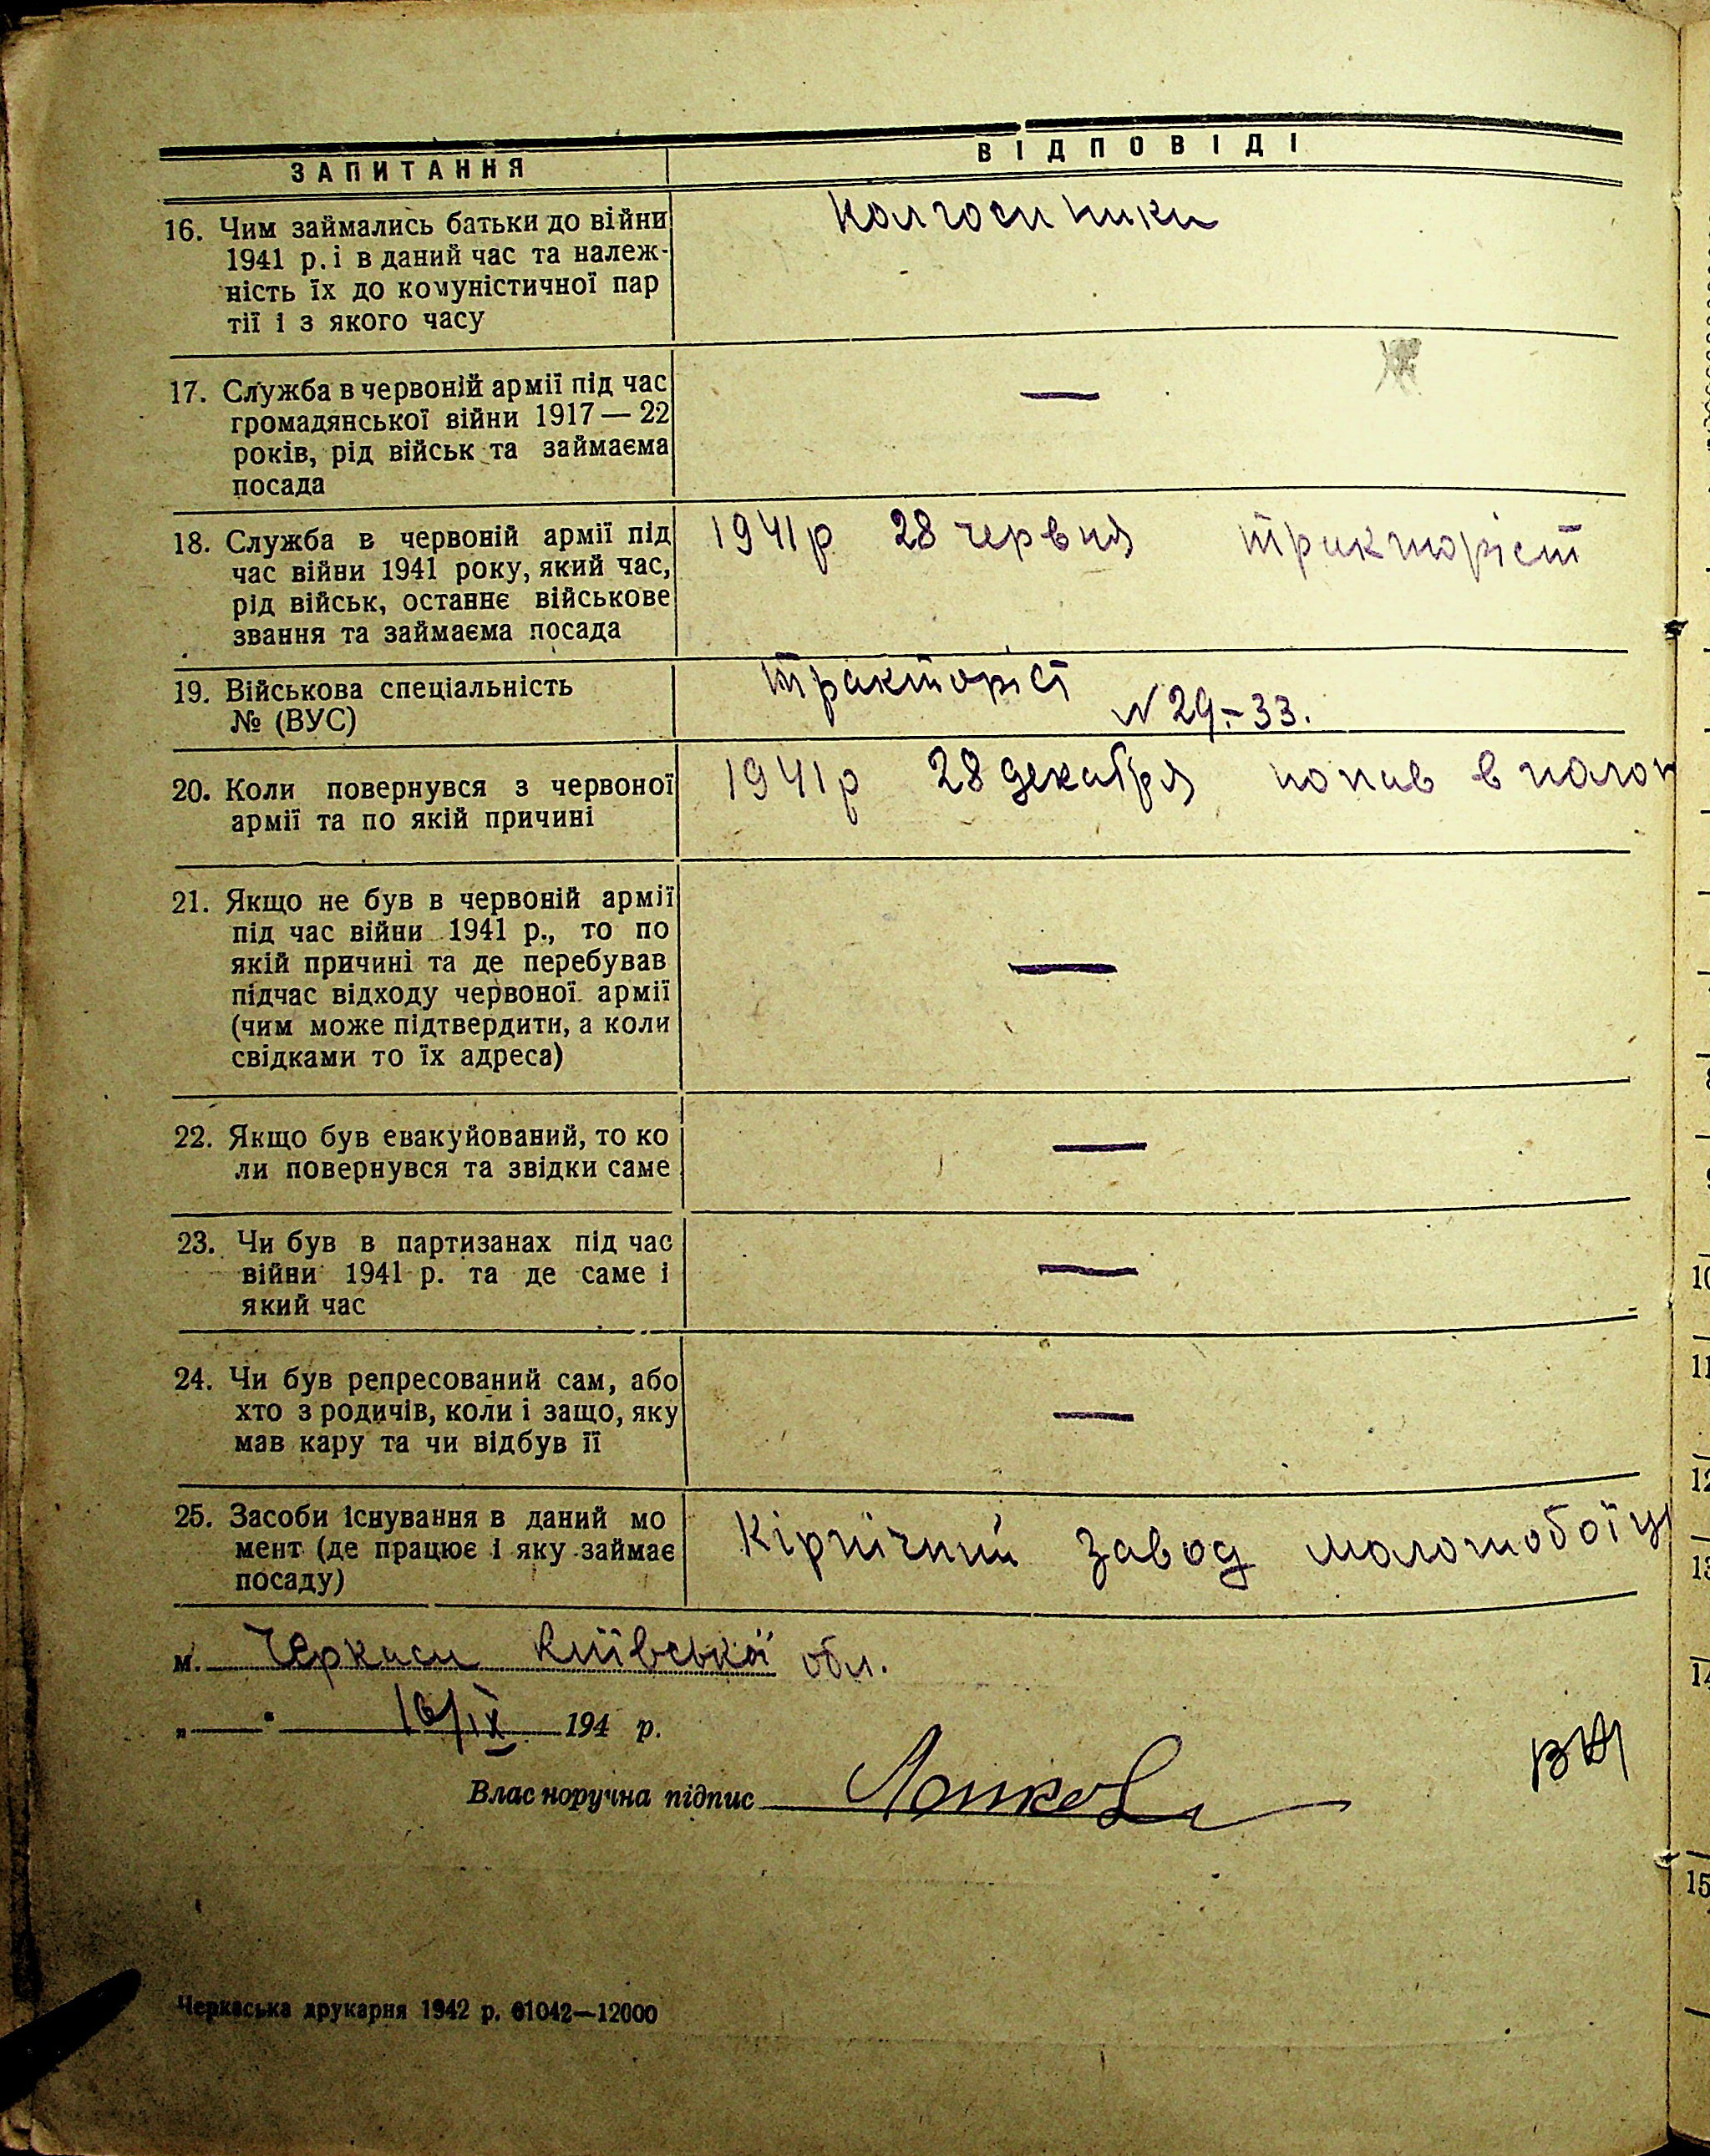 ЗАПИТАННЯ
ВІДПОВІДІ
16. Чим займались батьки до війни
1941 р. і в даний час та належ-
ність їх до комуністичної пар
тії і з якого часу
Колгоспники
17. Служба в червоній армії під час
громадянської війни 1917—22
років, рід військ та займаєма
посада
—
18. Служба в червоній армії під
час війни 1941 року, який час,
рід військ, останнє військове
звання та займаєма посада
1941р 28 червня тракторіст
19. Військова спеціальність
№ (ВУС)
тракторіст
N 29.-33.
20. Коли повернувся з червоної
армії та по якій причині
1941р 28 декабря попав в полон
21. Якщо не був в червоній армії
під час війни 1941 р., то по
якій причині та де перебував
підчас відходу червоної армії
(чим може підтвердити, а коли
свідками то їх адреса)
—
22. Якщо був евакуйований, то ко
ли повернувся та звідки саме
—
23. Чи був в партизанах під час
війни 1941 р. та де саме і
який час
—
24. Чи був репресований сам, або
хто з родичів, коли і защо, яку
мав кару та чи відбув її
—
25. Засоби існування в даний мо
мент (де працює і яку займає
посаду)
Кірпічний завод молотобоїц
м. Черкаси Київської обл.
„ — " 16/IX 194 р.
Власноручна підпис
Черкаська друкарня 1942 р. 61042—12000
10
11
12
13
14
15